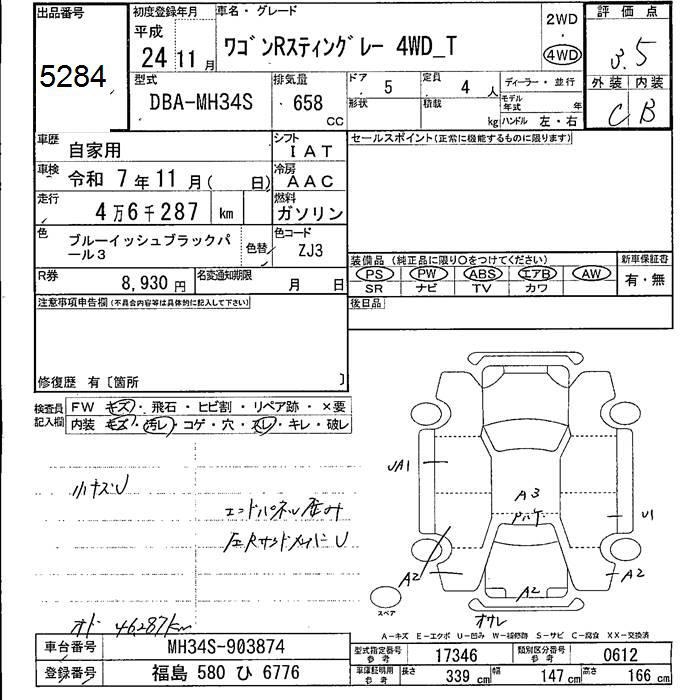 出品番号 初度登録年月 車名・グレード 2WD 評価点
5284 平成 24 11 月 ワゴンRスティングレー 4WD_T 4WD 3.5
型式 排気量 ドア 5 定員 4 人 ディーラー・並行 外装 内装
DBA-MH34S 658 cc 形状 積載 kg モデル年式 年 ハンドル 左・右 C B
車歴 自家用 シフト IAT セールスポイント(正常に機能するものに限ります)
車検 令和 7 年 11 月( 日) 冷房 AAC
走行 4 万 6 千 287 km 燃料 ガソリン
色 ブルーイッシュブラックパール3 色替 色コード ZJ3
装備品(純正品に限り○をつけてください) 新車保証書
PS PW ABS エアB AW 有・無
SR ナビ TV カワ
R券 8,930 円 名変通知期限 月 日
注意事項申告欄(不具合内容等は具体的に記入して下さい) 後日品
修復歴 有〔箇所 〕
検査員記入欄 FW キズ・飛石・ヒビ割・リペア跡・×要
内装 キズ・汚レ・コゲ・穴・スレ・キレ・破レ
小キズU
エンドパネル歪み
左RサイドメンバーU
オド 46287km
UA1
A3
U1
A2
A2
A2
スペア
A-キズ E-エクボ U-凹み W-補修跡 S-サビ C-腐食 XX-交換済
車台番号 MH34S-903874 型式指定番号 参考 17346 類別区分番号 参考 0612
登録番号 福島 580 ひ 6776 車庫証明用 参考 長さ 339 cm 幅 147 cm 高さ 166 cm